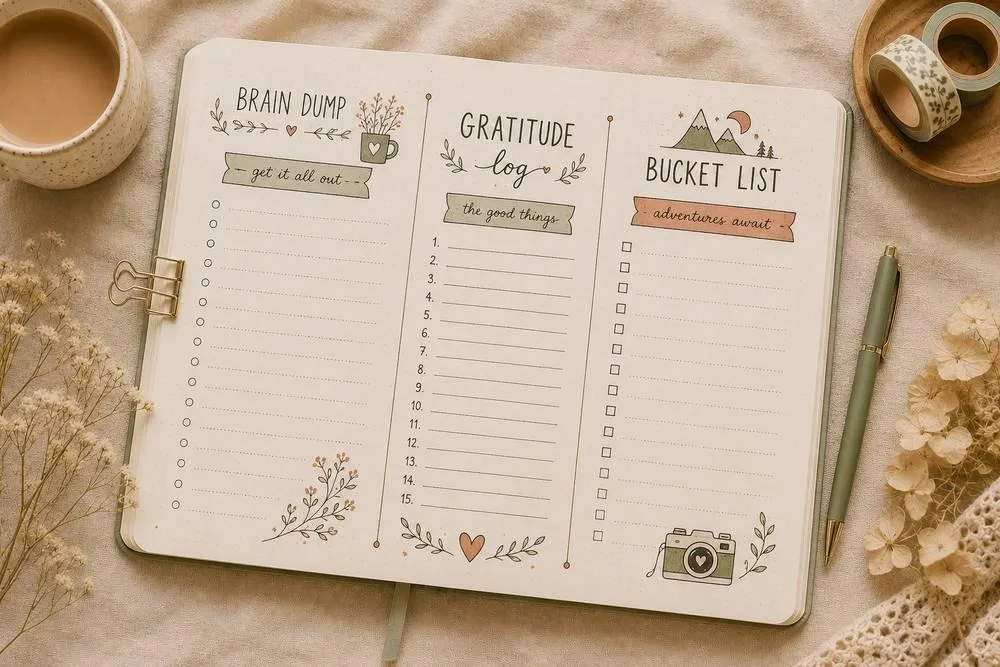 BRAIN DUMP
get it all out
GRATITUDE
log
the good things
1.
2.
3.
4.
5.
6.
7.
8.
9.
10.
11.
12.
13.
14.
15.
BUCKET LIST
adventures await